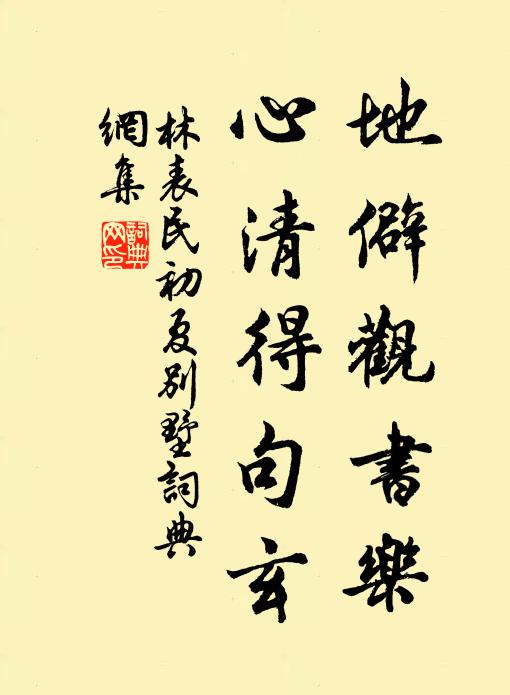 地僻觀書樂
心清得句玄
林表民初夏別墅詞典
網集
詞典網印